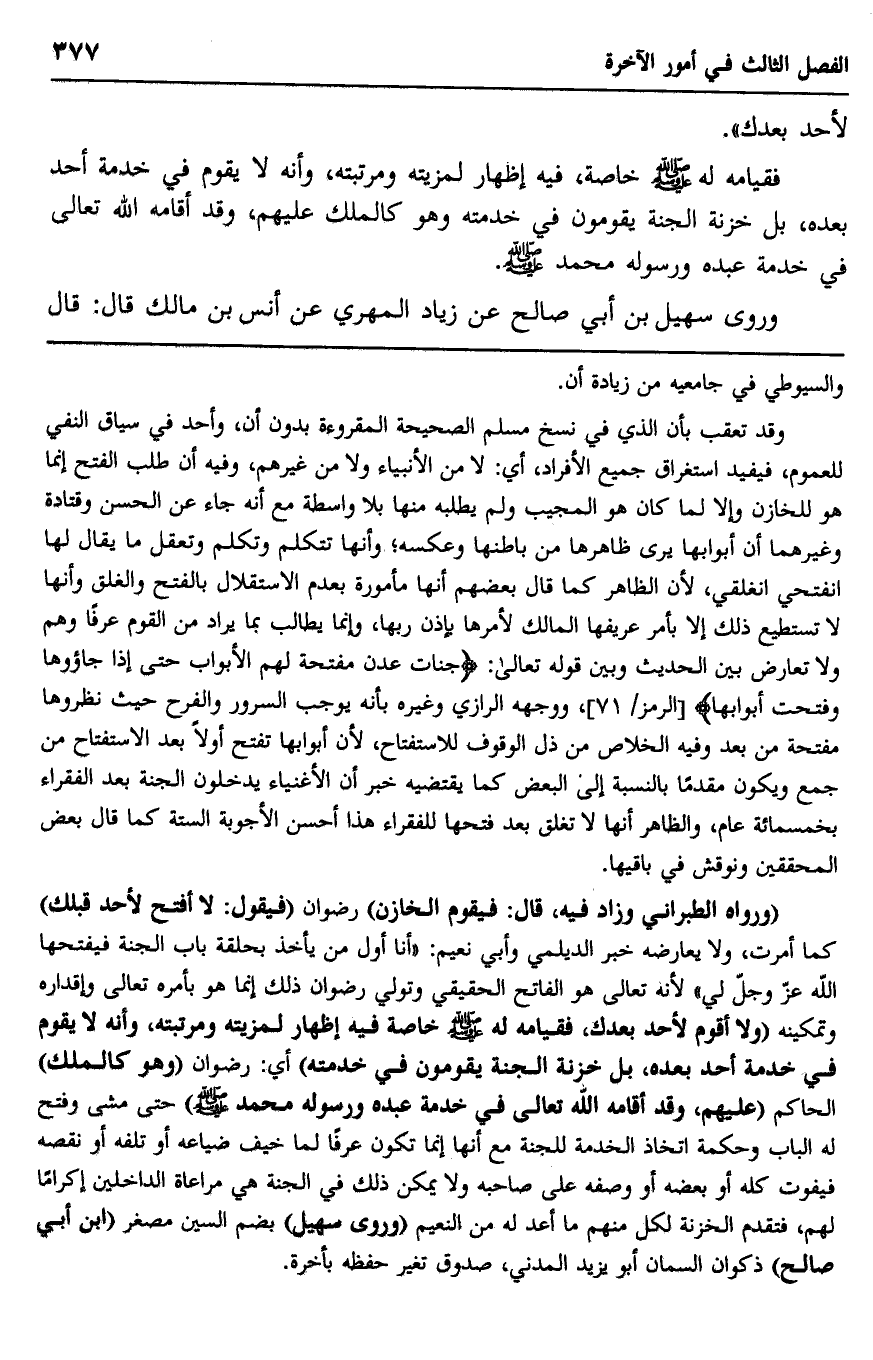 الفصل الثالث في أمور الآخرة ٣٧٧
لأحد بعدك».
فقيامه له ﷺ خاصة، فيه إظهار لمزيته ومرتبته، وأنه لا يقوم في خدمة أحد
بعده، بل خزنة الجنة يقومون في خدمته وهو كالملك عليهم، وقد أقامه الله تعالى
في خدمة عبده ورسوله محمد ﷺ.
وروى سهيل بن أبي صالح عن زياد المهري عن أنس بن مالك قال: قال
والسيوطي في جامعيه من زيادة أن.
وقد تعقب بأن الذي في نسخ مسلم الصحيحة المقروءة بدون أن، وأحد في سياق النفي
للعموم، فيفيد استغراق جميع الأفراد، أي: لا من الأنبياء ولا من غيرهم، وفيه أن طلب الفتح إنما
هو للخازن وإلا لما كان هو المجيب ولم يطلبه منها بلا واسطة مع أنه جاء عن الحسن وقتادة
وغيرهما أن أبوابها يرى ظاهرها من باطنها وعكسه؛ وأنها تتكلم وتكلم وتعقل ما يقال لها
انفتحي انغلقي، لأن الظاهر كما قال بعضهم أنها مأمورة بعدم الاستقلال بالفتح والغلق وأنها
لا تستطيع ذلك إلا بأمر عريفها المالك لأمرها بإذن ربها، وإنما يطالب بما يراد من القوم عرفًا وهم
ولا تعارض بين الحديث وبين قوله تعالىٰ: ﴿جنات عدن مفتحة لهم الأبواب حتى إذا جاؤوها
وفتحت أبوابها﴾ [الرمز/ ٧١]، ووجهه الرازي وغيره بأنه يوجب السرور والفرح حيث نظروها
مفتحة من بعد وفيه الخلاص من ذل الوقوف للاستفتاح، لأن أبوابها تفتح أولاً بعد الاستفتاح من
جمع ويكون مقدمًا بالنسبة إلىٰ البعض كما يقتضيه خبر أن الأغنياء يدخلون الجنة بعد الفقراء
بخمسمائة عام، والظاهر أنها لا تغلق بعد فتحها للفقراء هذا أحسن الأجوبة الستة كما قال بعض
المحققين ونوقش في باقيها.
(ورواه الطبراني وزاد فيه، قال: فيقوم الخازن) رضوان (فيقول: لا أفتح لأحد قبلك)
كما أمرت، ولا يعارضه خبر الديلمي وأبي نعيم: «أنا أول من يأخذ بحلقة باب الجنة فيفتحها
الله عزّ وجلّ لي» لأنه تعالى هو الفاتح الحقيقي وتولي رضوان ذلك إنما هو بأمره تعالى وإقداره
وتمكينه (ولا أقوم لأحد بعدك، فقيامه له ﷺ خاصة فيه إظهار لمزيته ومرتبته، وأنه لا يقوم
في خدمة أحد بعده، بل خزنة الجنة يقومون في خدمته) أي: رضوان (وهو كالملك)
الحاكم (عليهم، وقد أقامه الله تعالى في خدمة عبده ورسوله محمد ﷺ) حتى مشى وفتح
له الباب وحكمة اتخاذ الخدمة للجنة مع أنها إنما تكون عرفًا لما خيف ضياعه أو تلفه أو نقصه
فيفوت كله أو بعضه أو وصفه على صاحبه ولا يمكن ذلك في الجنة هي مراعاة الداخلين إكرامًا
لهم، فتقدم الخزنة لكل منهم ما أعد له من النعيم (وروى سهيل) بضم السين مصغر (ابن أبي
صالح) ذكوان السمان أبو يزيد المدني، صدوق تغير حفظه بأخرة.